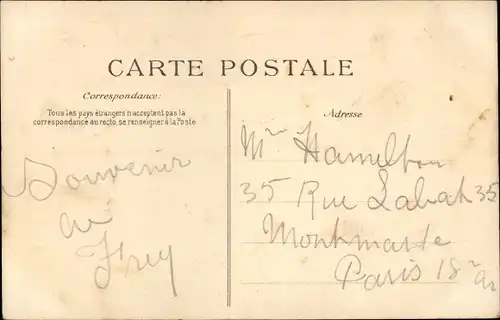 CARTE POSTALE
Correspondance:
Tous les pays étrangers n'acceptent pas la
correspondance au recto, se renseigner à la Poste
Souvenir
de
Adresse
Mr Hamilton
35 Rue Labat 35
Montmarte
Paris 18e ar